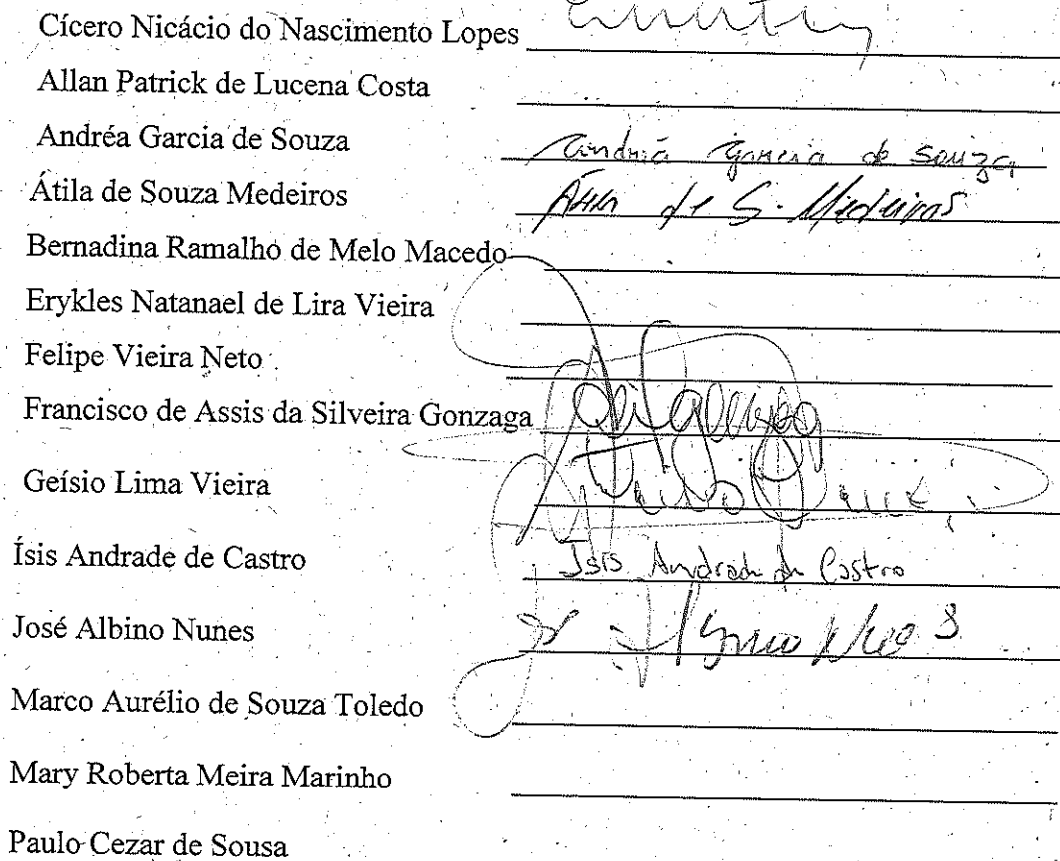 Cícero Nicácio do Nascimento Lopes
Allan Patrick de Lucena Costa
Andréa Garcia de Souza Andréa Garcia de Souza
Átila de Souza Medeiros Átila de S. Medeiros
Bernadina Ramalho de Melo Macedo
Erykles Natanael de Lira Vieira
Felipe Vieira Neto
Francisco de Assis da Silveira Gonzaga
Geísio Lima Vieira
Ísis Andrade de Castro Ísis Andrade de Castro
José Albino Nunes
Marco Aurélio de Souza Toledo
Mary Roberta Meira Marinho
Paulo Cezar de Sousa